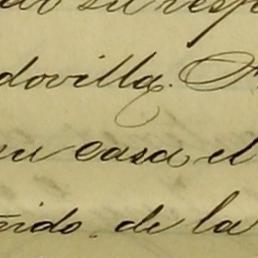 su resp
dovilla.
su casa el
ñido. de la